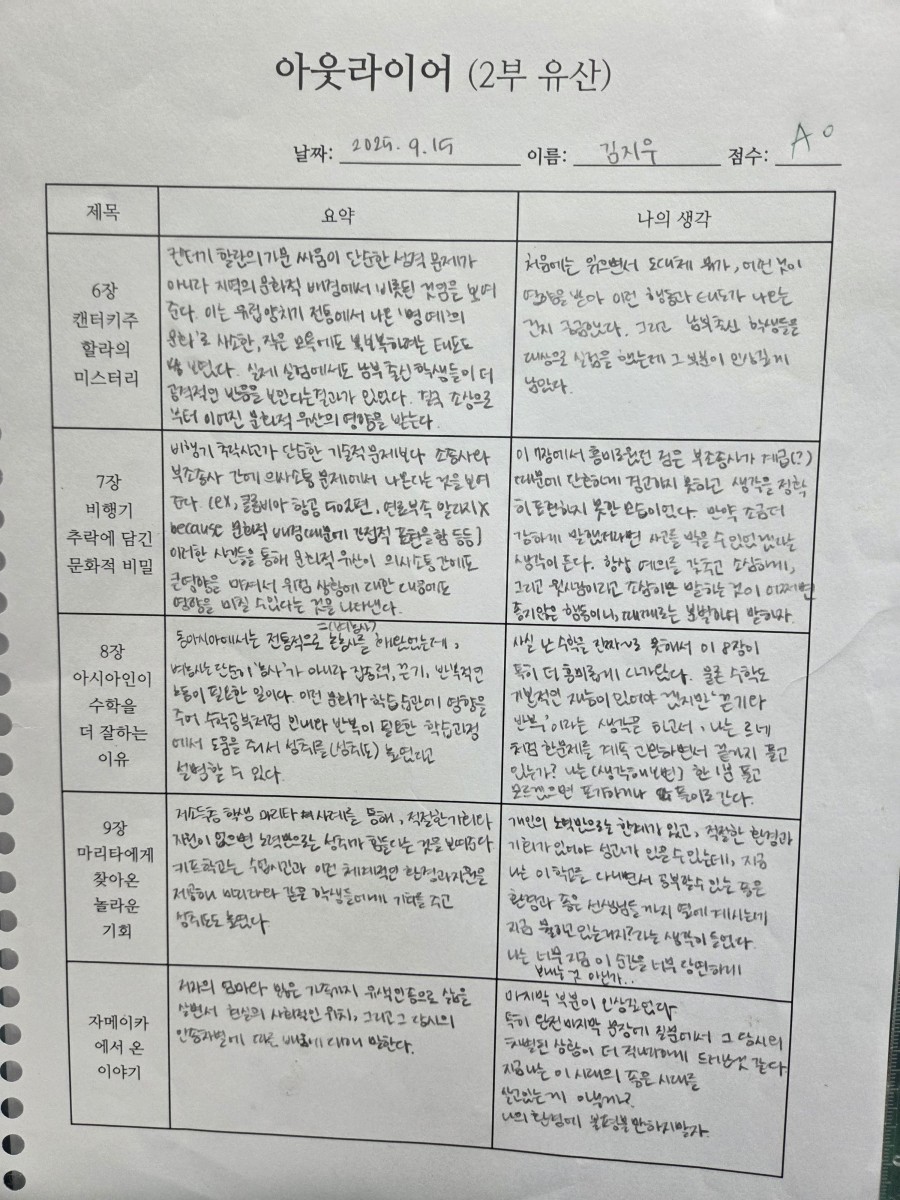 아웃라이어 (2부 유산)
날짜: 2025. 9. 15 이름: 김지우 점수: A0
제목
요약
나의 생각
6장
캔터키주
할라의
미스터리
컨터키 할란의 가문 싸움이 단순한 성격 문제가
아니라 지역의 문화적 배경에서 비롯된 것임을 보여
준다. 이는 유럽 양치기 전통에서 나온 '명예'의
문화'로 사소한, 작은 모욕에도 보복하려는 태도도
보였다. 실제 실험에서도 남부 출신 학생들이 더
공격적인 반응을 보인다는 결과가 있었다. 결국 조상으로
부터 이어진 문화적 유산의 영향을 받는다.
처음에는 읽으면서 도대체 뭐가, 어떤 것이
영향을 받아 이런 행동과 태도가 나오는
건지 궁금했다. 그리고 남부출신 학생들을
대상으로 실험을 했는데 그 부분이 인상깊게
남았다.
7장
비행기
추락에 담긴
문화적 비밀
비행기 추락사고가 단순한 기술적 문제보다 조종사와
부조종사 간에 의사소통 문제에서 나온다는 것을 보여
준다. (ex, 콜롬비아 항공 502편, 연료부족 알리지X
because 문화적 배경때문에 간접적 표현을 함 등등)
이러한 사건들을 통해 문화적 유산이 의사소통간에도
큰영향을 미쳐서 위험 상황에 대한 대응에도
영향을 미칠 수 있다는 것을 나타낸다.
이 7장에서 흥미로웠던 점은 부조종사가 계급(?)
때문에 단호하게 경고하지 못하고 생각을 정확
히 표현하지 못한 모습이었다. 만약 조금더
강하게 말했더라면 사고를 막을 수 있었겠다라는
생각이 든다. 항상 예의를 갖추고 소심하게,
그리고 윗사람이라고 조심히만 말하는 것이 어쩌면
좋지않은 행동이니, 때때로는 분별하여 말하자.
8장
아시아인이
수학을
더 잘하는
이유
=(벼농사)
동아시아에서는 전통적으로 논농사를 해왔었는데,
벼농사는 단순이 '농사'가 아니라 집중력, 끈기, 반복적인
노동이 필요한 일이다. 이런 문화가 학습 습관에 영향을
주어 수학공부처럼 인내와 반복이 필요한 학습과정
에서 도움을 줘서 성취를(성취도) 높였다고
설명할 수 있다.
사실 난 수학을 진짜~로 못해서 이 8장이
특히 더 흥미롭게 다가왔다. 물론 수학도
기본적인 재능이 있어야 겠지만 '끈기와
반복'이라는 생각을 하고서, 나는 르네
처럼 한문제를 계속 고민하면서 끝까지 풀고
있는가? 나는 (생각해보면) 한 1분 풀고
모르겠으면 포기하거나 풀이로 간다.
9장
마리타에게
찾아온
놀라운
기회
저소득층 학생 마리타 사례를 통해, 적절한 기회와
자원이 없으면 노력만으로는 성취가 힘들다는 것을 보여준다.
키프학교는 수업시간과 이런 체계적인 환경과 자원을
제공해 마리타와 같은 학생들에게 기회를 주고
성취도도 높였다.
개인의 노력만으로는 한계가 있고, 적절한 환경과
기회가 있어야 성과가 있을 수 있는데, 지금
나는 이 학교를 다니면서 공부할수 있는 좋은
환경과 좋은 선생님들까지 옆에 계시는데
지금 뭘하고 있는거지?라는 생각이 들었다.
나는 너무 지금 이 순간을 너무 당연하게
배는 것 아닌가..
자메이카
에서 온
이야기
저자의 엄마와 많은 가족까지 유색인종으로 삶을
살면서 현실의 사회적인 위치, 그리고 그 당시의
인종차별에 따른 배경에 대해 말한다.
마지막 부분이 인상깊었다
특히 완전 마지막 문장에 질문에서 그 당시의
차별된 상황이 더 적나라하게 드러난것 같다.
지금나는 이 시대의 좋은 시대를
살고있는게 아닐까?
나의 환경에 불평불만하지말자.